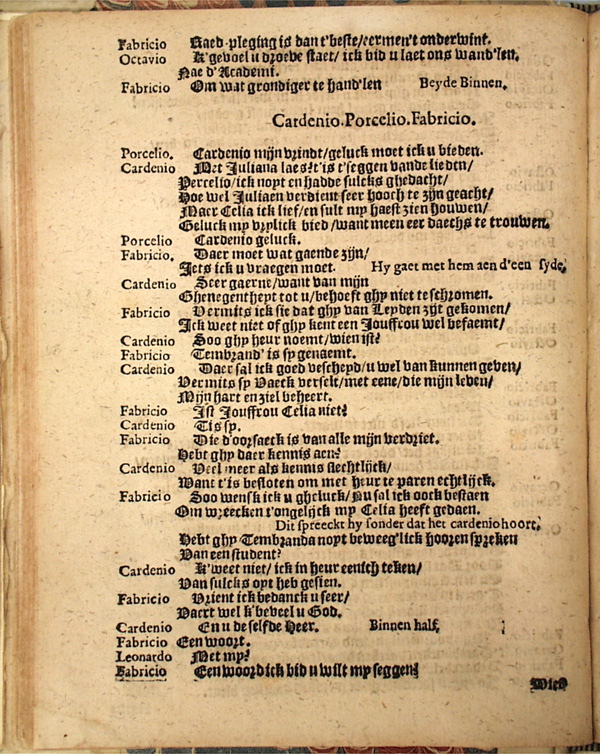 Fabricio Raed-pleging is dan t'beste/eermen't onderwint.
Octavio K'gevoel u droeve staet/ ick bid u laet ons wand'len,
Nae d'Academi.
Fabricio Om wat grondiger te hand'len Beyde Binnen.
Cardenio. Porcelio. Fabricio.
Porcelio. Cardenio mijn vrindt/geluck moet ick u bieden.
Cardenio Met Juliana laes? t'is t'seggen vande lieden/
Percelio/ick noyt en hadde sulcks ghedacht/
Hoe wel Juliaen verdient seer hooch te zijn geacht/
Maer Celia ick lief/en sult my haest zien houwen/
Geluck my vrylick bied/want meen eer daechs te trouwen.
Porcelio Cardenio geluck.
Fabricio. Daer moet wat gaende zijn/
Iets ick u vraegen moet. Hy gaet met hem aen d'een syde,
Cardenio Seer gaerne/want van mijn
Ghenegentheyt tot u/behoeft ghy niet te schromen.
Fabricio Vermits ick sie dat ghy van Leyden zijt gekomen/
Ick weet niet of ghy kent een Jouffrou wel befaemt/
Cardenio Soo ghy heur noemt/wien ist?
Fabricio Tembrand' is sy genaemt.
Cardenio Daer sal ick goed bescheyd/u wel van kunnen geven/
Vermits sy vaeck verselt/met eene/die mijn leven/
Mijn hart en ziel beheert.
Fabricio Ist Jouffrou Celia niet?
Cardenio Tis sy.
Fabricio Die d'oorsaeck is van alle mijn verdriet.
Hebt ghy daer kennis aen?
Cardenio Veel meer als kennis slechtlijck/
Want t'is besloten om met heur te paren echtlijck.
Fabricio Soo wensk ick u gheluck/Nu sal ick oock bestaen
Om wreecken t'ongelijck my Celia heeft gedaen.
Dit spreeckt hy sonder dat het cardenio hoort.
Hebt ghy Tembranda noyt beweeg'lick hooren spreken
Van een student?
Cardenio K'weet niet/ ick in heur eenich teken/
Van sulcks oyt heb gesien.
Fabricio Vrient ick bedanck u seer/
Vaert wel k'beveel u God.
Cardenio En u de selfde Heer. Binnen half,
Fabricio Een woort.
Leonardo Met my?
Fabricio Een woord ick bid u wilt my seggen?